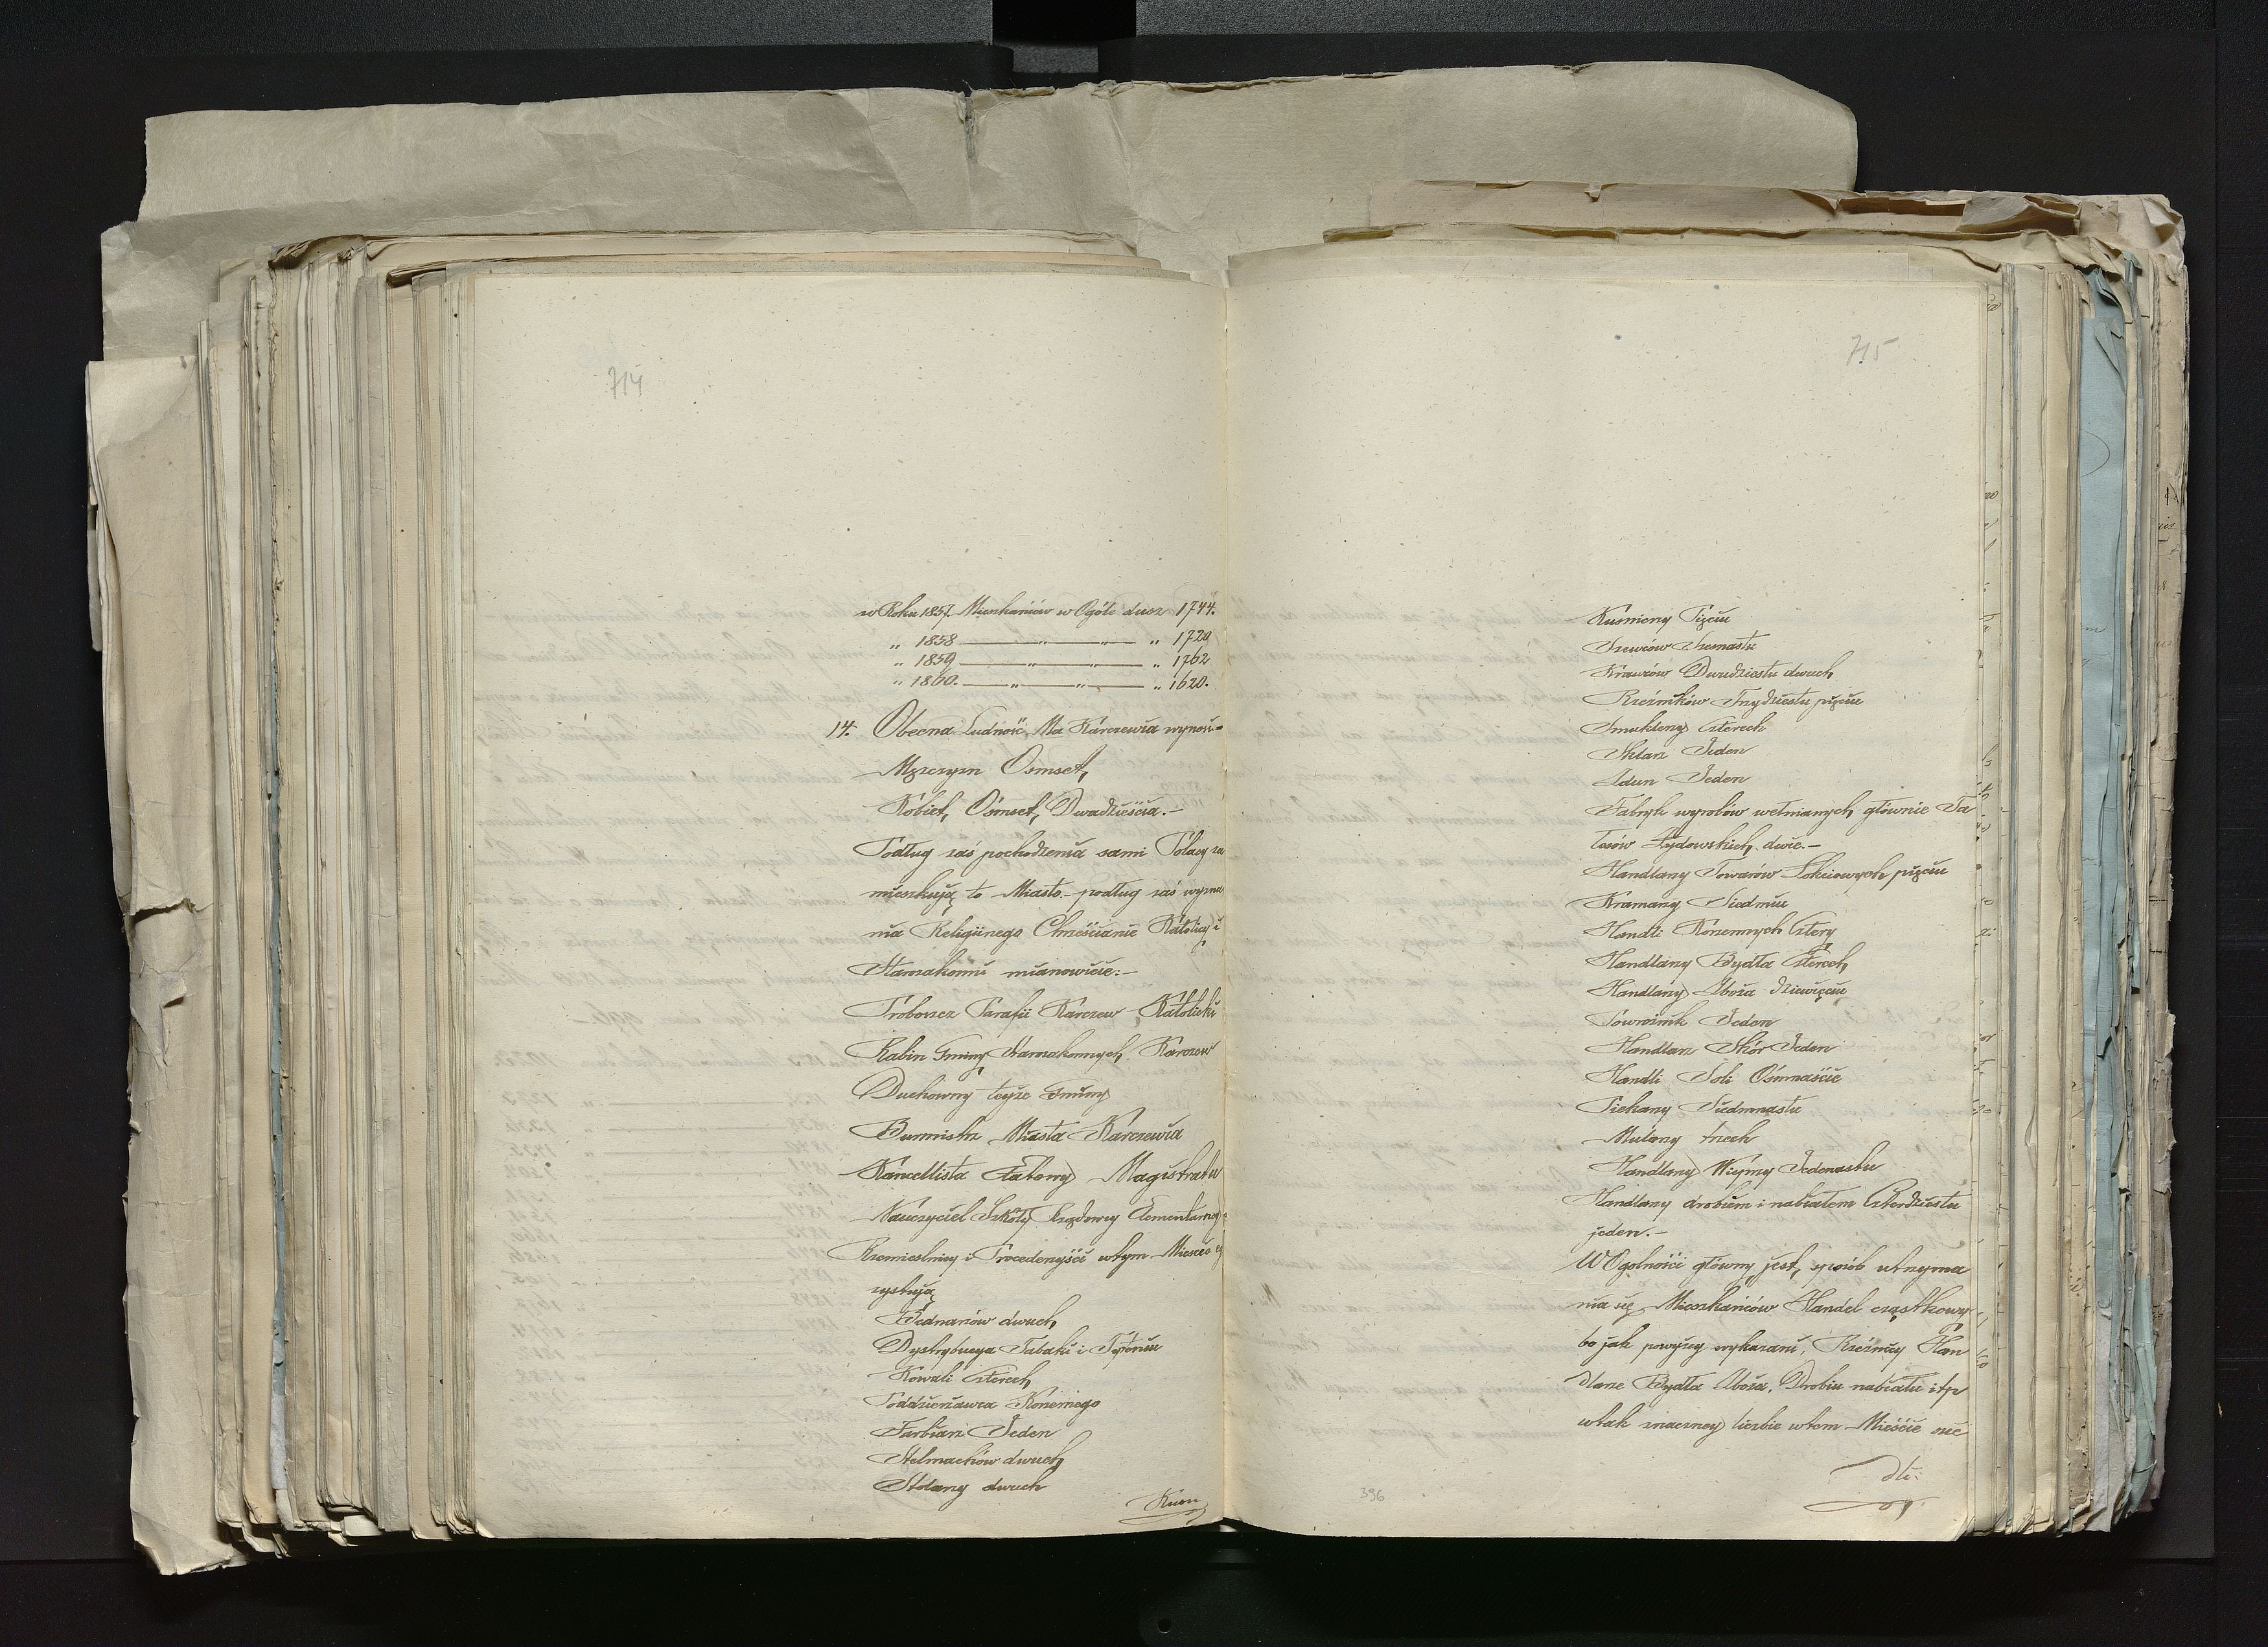 714
w Roku 1857. Mieszkańców w Ogóle dusz 1744.
„ 1858 — „ — „ — „ 1720
„ 1859 — „ — „ — „ 1762
„ 1860. — „ — „ — „ 1620.
14. Obecna Ludność Ma Karczewia wynosi=
Męzczyzn Osmset,
Kobiet, Osmset, Dwadzieścia.—
Podług zaś pochodzenia sami Polacy za
mieszkują to Miasto — podług zaś wyzna
nia Religijnego Chrześcianie Katolicy i
Starozakonni mianowicie:—
Proboszcz Parafii Karczew Katolicki
Rabin Gminy Starozakonnych Karczew
Duchowny tejże Gminy
Burmistrz Miasta Karczewia
Kancellista Etatowy Magistratu
Nauczyciel Szkoły Rządowej Elementarnej
Rzemieslnicy i Procederzyści w tym Mieście eg
zystują
Bednarzów dwuch,
Dystrybucya Tabaki i Tytoniu
Kowali Czterech
Poddzierżawca Koniecznego
Farbiarz Jeden
Stelmachów dwuch
Stolarzy dwuch
Kusn
715
Kusnierzy Pięciu
Szewców Szesnastu
Krawców Dwudziestu dwuch
Rzeźników Trzydziestu pięciu
Szmuklerzy Czterech
Szklarz Jeden
Zdun Jeden
Fabryk wyrobów wełnianych głównie Ta
łesów Żydowskich dwie.—
Handlarzy Towarów Łokciowych pięciu
Kramarzy Siedmiu
Handli Korzennych Cztery
Handlarzy Bydła Czterech
Handlarzy Zboża dziewięciu
Powroźnik Jeden
Handlarz Skór Jeden
Handli Soli Ośmnaście
Piekarzy Siedmnastu
Mularzy trzech
Handlarzy Wieprzy Jedenastu
Handlarzy drobiem i nabiałem Czterdziestu
jeden.—
W Ogolności główny jest, sposób utrzyma
nia się Mieszkańców Handel cząstkowy
bo jak powyżej wykazani, Rzeźnicy Han
dlarze Bydła Zboża, Drobiu nabiału itp
w tak znacznej liczbie w tem Mieście osie
dli:
396